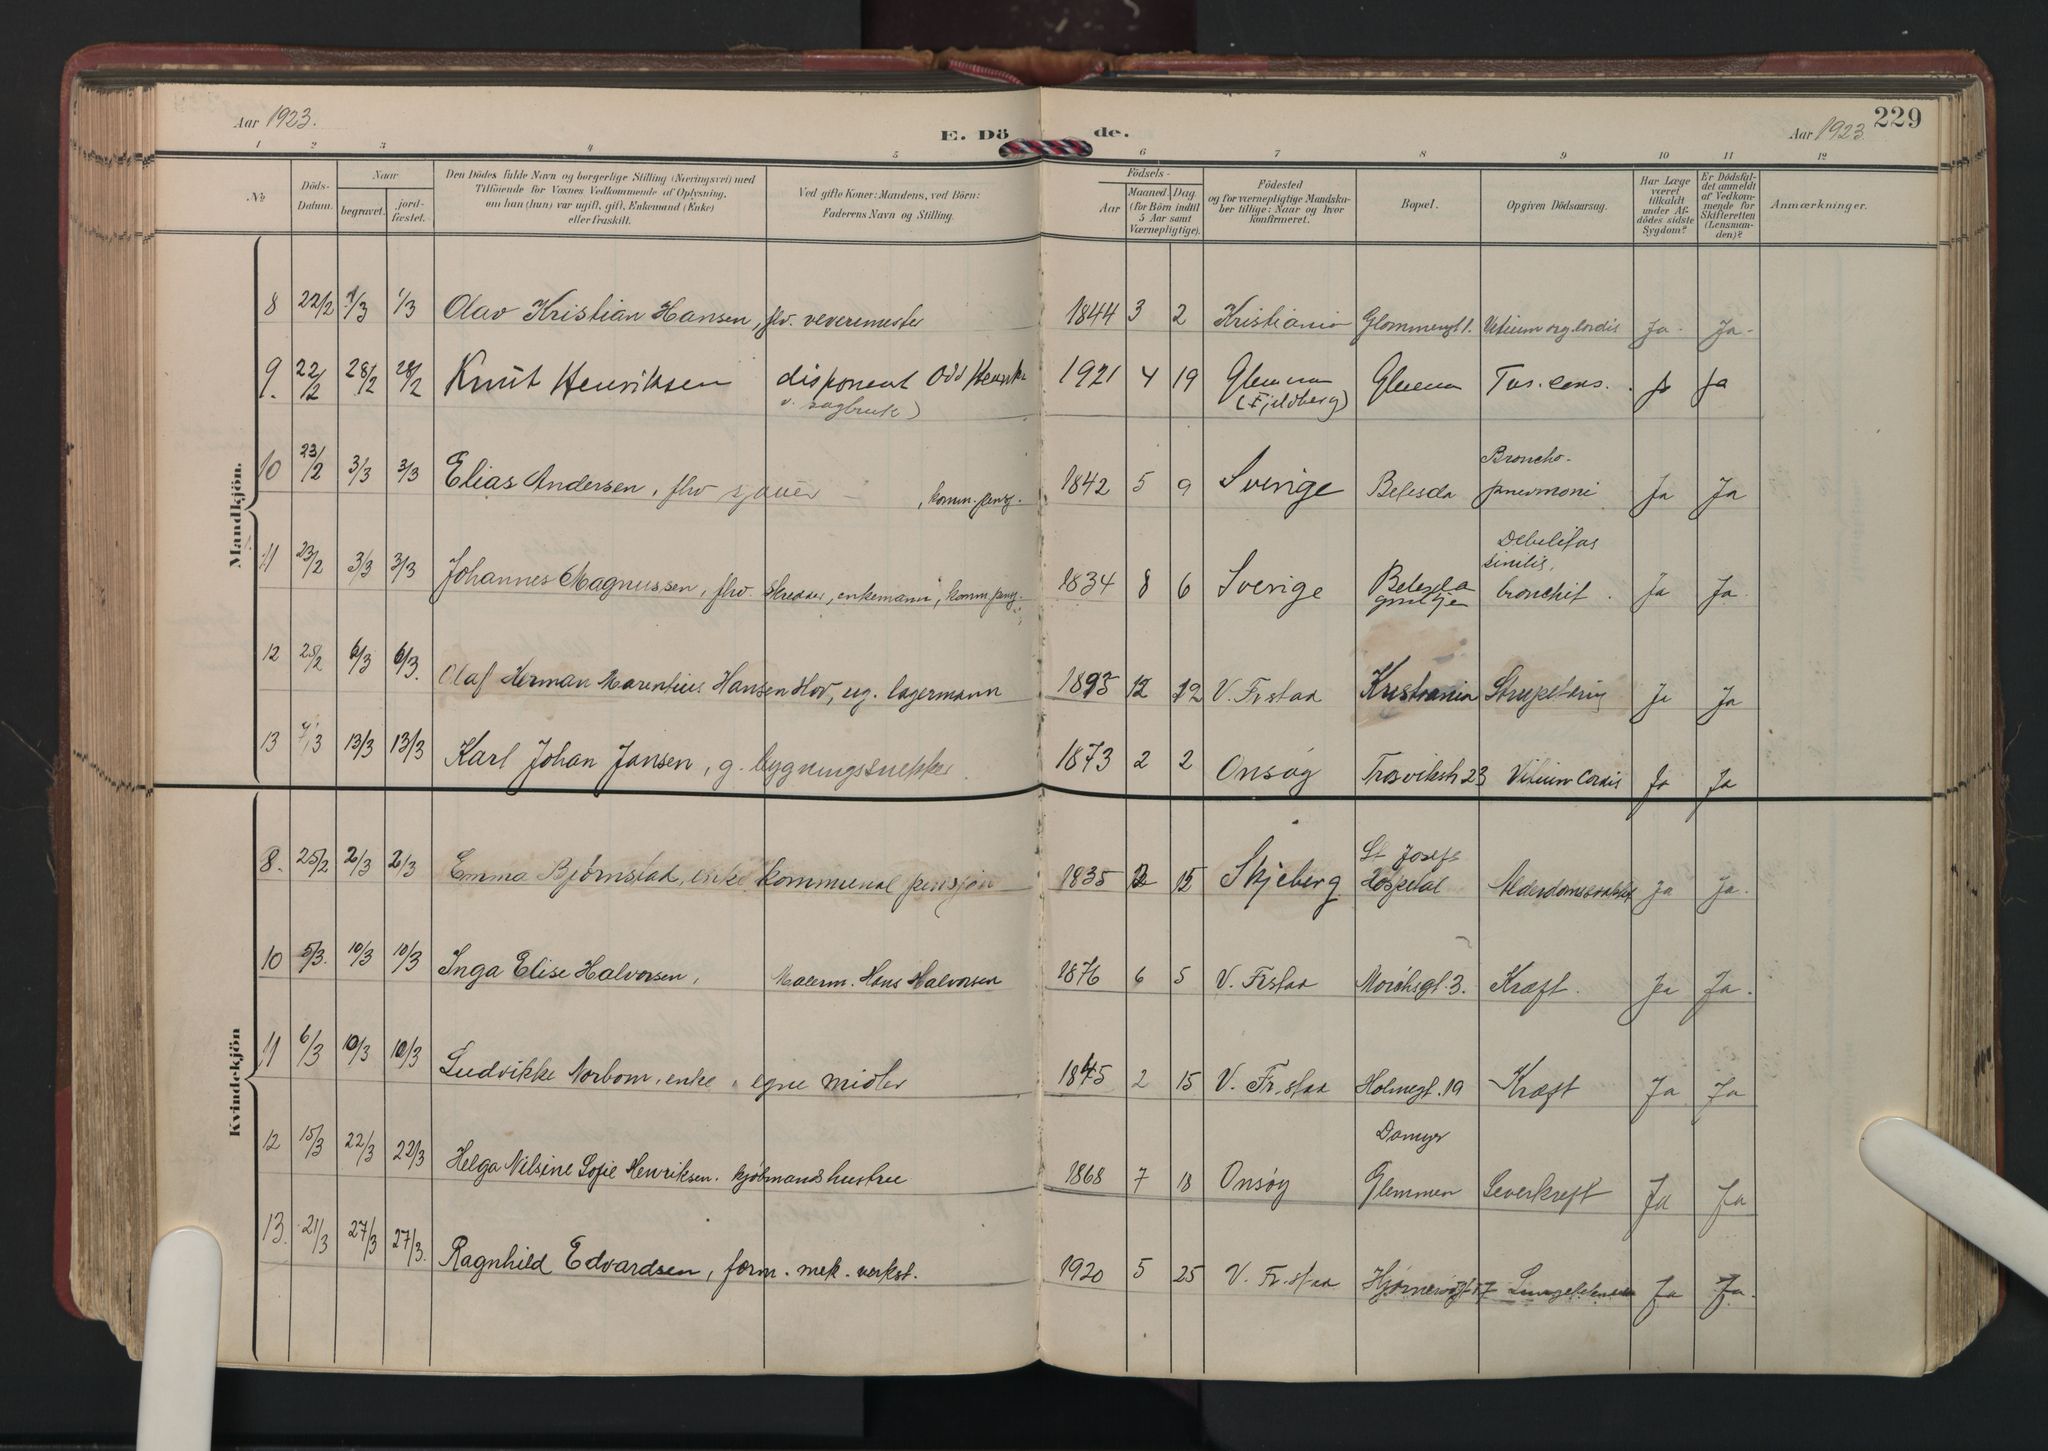 Aar 1923.
E. Dö de.
Aar 1923
229
1 2 3 4 5 6 7 8 9 10 11 12
No.
Döds-
Datum.
Naar
begravet.
jord-
fæstet.
Den Dödes fulde Navn og borgerlige Stilling (Næringsvei) med
Tilföiende for Voxnes Vedkommende af Oplysning,
om han (hun) var ugift, gift, Enkemand (Enke)
eller fraskilt.
Ved gifte Koner: Mandens, ved Börn:
Faderens Navn og Stilling.
Födsels-
Aar
Maaned.
Dag.
(for Börn indtil
5 Aar samt
Værnepligtige).
Födested
og for værnepligtige Mandska-
ber tillige: Naar og hvor
konfirmeret.
Bopæl.
Opgiven Dödsaarsag.
Har Læge
været
tilkaldt
under Af-
dödes sidste
Sygdom?
Er Dödsfal-
det anmeldt
af Vedkom-
mende for
Skifteretten
(Lensman-
den)?
Anmærkninger.
Mandkjön.
8 22/2 1/3 1/3 Olav Kristian Hansen, fhv. veveremester 1844 3 2 Kristiania Glommengt 1. Vitium org. cordis Ja. Ja.
9. 22/2 28/2 28/2 Knut Henriksen disponent Odd 1921 4 19 Glemmen Glemmen Tus. conv. Ja Ja
v. sagbruk) (Fjeldberg)
10 23/2 3/3 3/3 Elias Andersen, fhv sjauer , komm. pensj. 1842 5 9 Sverige Betesda Broncho-
pneumoni Ja Ja
11 23/2 3/3 3/3 Johannes Magnussen, fhv. skredder, enkemann, komm. pensj. 1834 8 6 Sverige Betesda Debilitas
sinilis,
bronchit. Ja Ja.
12 25/2 6/3 6/3. Olaf Herman Marentius Hansen Hov, ug. lagermann 1895 12 12 V. Frstad Kristiania Ja Ja
13 7/3 13/3 13/3 Karl Johan Jansen, g. bygningssnekker. 1873 2 2 Onsøy Trosvikstr 23 Vitium Cordis Ja Ja
Kvindekjön
8. 25/2 2/3 2/3 Emma Bjørnstad, enke, kommunal pensjon 1835 12 15 Skjeberg St Josefs
Hospital Alderdomssvakhet Ja Ja.
10 5/3. 10/3 10/3 Inga Elise Halvorsen, Malerm. Hans Halvorsen 1876 6 5 V. Frstad Mørchsgt. 3. Kræft. Ja Ja.
11 6/3 10/3 10/3 Ludvikke Norbom, enke, egne midler 1845 2 15 V. Fr.stad Holmegt. 19 Kræft Ja Ja
12 15/3 22/3 22/3 Helga Nilsine Sofie Henriksen. kjøbmandshustru 1868 7 18 Onsøy Damyr
Glemmen Leverkreft Ja Ja
13. 21/3 27/3 27/3. Ragnhild Edvardsen, form. mek. verkst. 1920 5 25 V. Fr.stad Ja Ja.